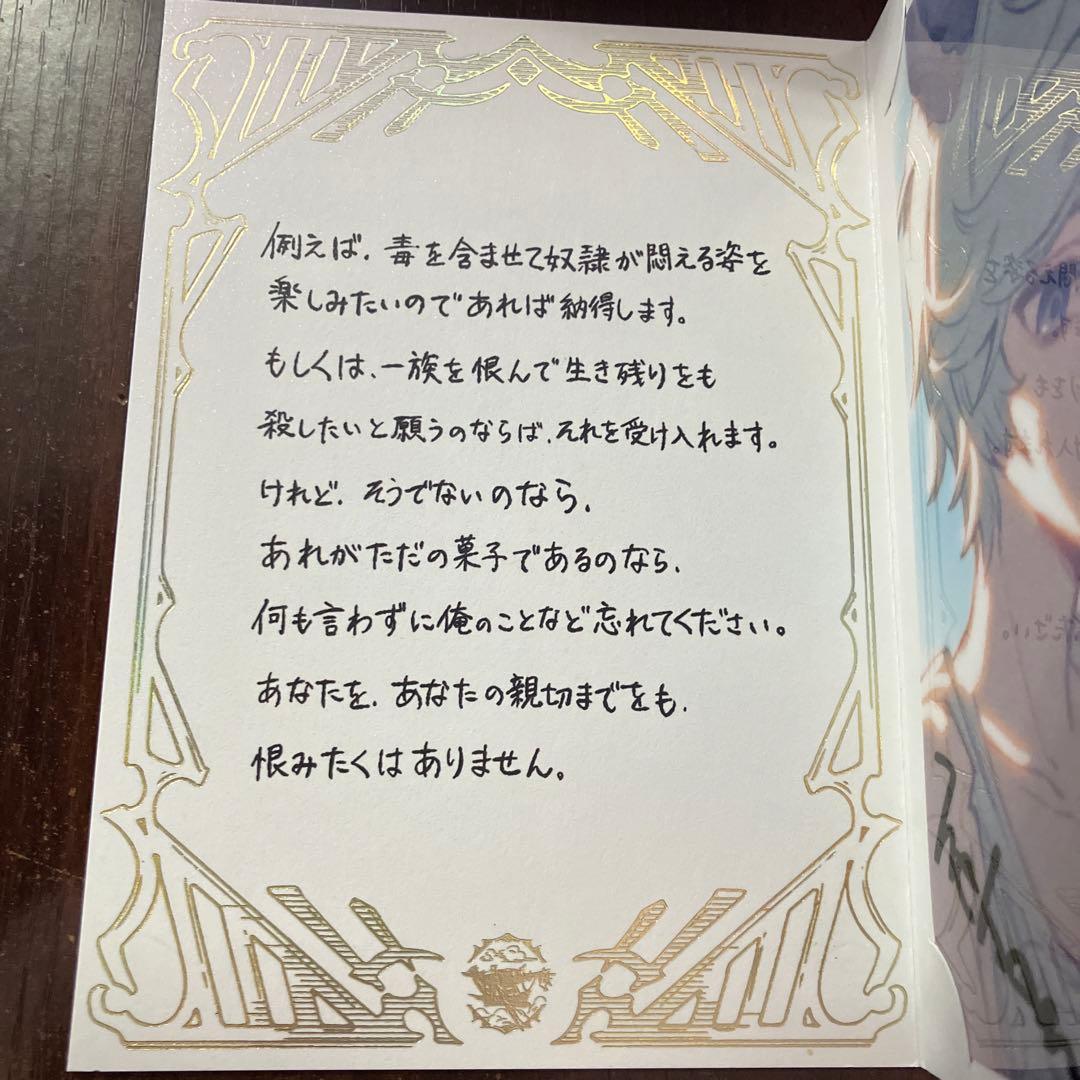 例えば、毒を含ませて奴隷が悶える姿を
楽しみたいのであれば納得します。
もしくは、一族を恨んで生き残りをも
殺したいと願うのならば、それを受け入れます。
けれど、そうでないのなら、
あれがただの菓子であるのなら、
何も言わずに俺のことなど忘れてください。
あなたを、あなたの親切までをも、
恨みたくはありません。